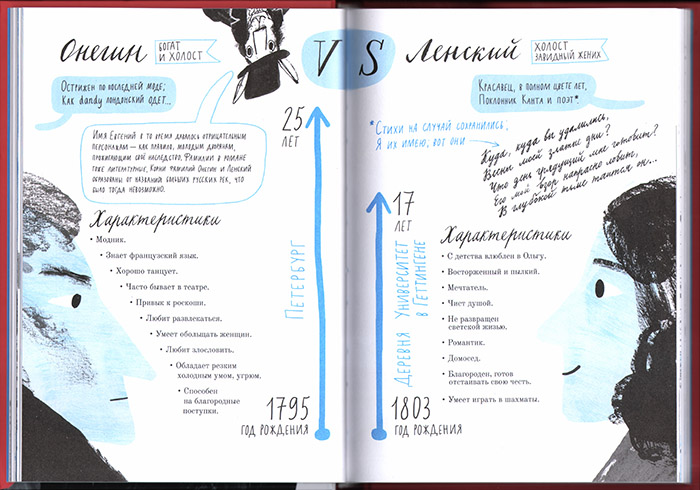 Онегин
БОГАТ
И ХОЛОСТ
ОСТРИЖЕН ПО ПОСЛЕДНЕЙ МОДЕ;
КАК dandy ЛОНДОНСКИЙ ОДЕТ...
ИМЯ ЕВГЕНИЙ В ТО ВРЕМЯ ДАВАЛОСЬ ОТРИЦАТЕЛЬНЫМ
ПЕРСОНАЖАМ — КАК ПРАВИЛО, МОЛОДЫМ ДВОРЯНАМ,
ПРОЖИГАЮЩИМ СВОЁ НАСЛЕДСТВО. ФАМИЛИИ В РОМАНЕ
ТОЖЕ ЛИТЕРАТУРНЫЕ. КОРНИ ФАМИЛИЙ ОНЕГИН И ЛЕНСКИЙ
ОБРАЗОВАНЫ ОТ НАЗВАНИЙ БОЛЬШИХ РУССКИХ РЕК, ЧТО
БЫЛО ТОГДА НЕВОЗМОЖНО.
25
ЛЕТ
Характеристики
• Модник.
• Знает французский язык.
• Хорошо танцует.
• Часто бывает в театре.
• Привык к роскоши.
• Любит развлекаться.
• Умеет обольщать женщин.
• Любит злословить.
• Обладает резким
холодным умом, угрюм.
• Способен
на благородные
поступки.
ПЕТЕРБУРГ
1795
ГОД РОЖДЕНИЯ
VS
Ленский
ХОЛОСТ
ЗАВИДНЫЙ ЖЕНИХ
КРАСАВЕЦ, В ПОЛНОМ ЦВЕТЕ ЛЕТ,
ПОКЛОННИК КАНТА И ПОЭТ*.
*СТИХИ НА СЛУЧАЙ СОХРАНИЛИСЬ;
Я ИХ ИМЕЮ; ВОТ ОНИ
Куда, куда вы удалились,
Весны моей златые дни?
Что день грядущий мне готовит?
Его мой взор напрасно ловит,
В глубокой тьме таится он...
17
ЛЕТ
ДЕРЕВНЯ УНИВЕРСИТЕТ
В ГЕТТИНГЕНЕ
Характеристики
• С детства влюблен в Ольгу.
• Восторженный и пылкий.
• Мечтатель.
• Чист душой.
• Не развращен
светской жизнью.
• Романтик.
• Домосед.
• Благороден, готов
отстаивать свою честь.
• Умеет играть в шахматы.
1803
ГОД РОЖДЕНИЯ